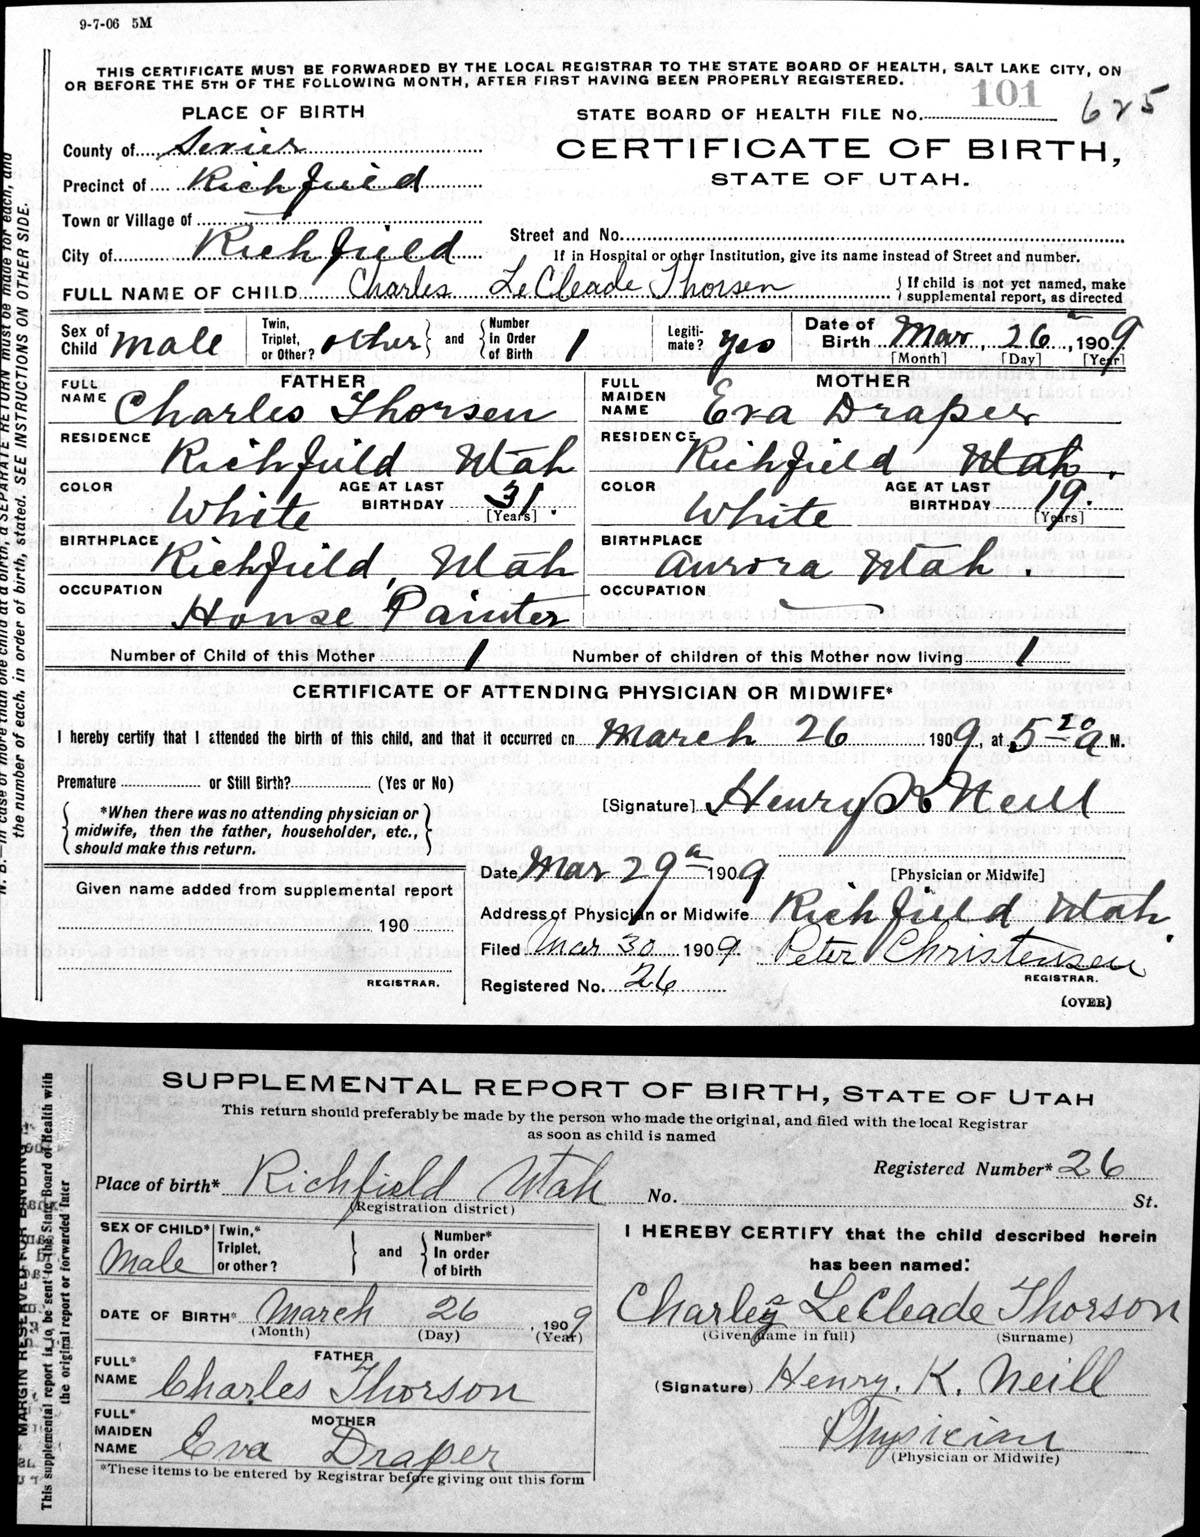 9-7-06 5M
THIS CERTIFICATE MUST BE FORWARDED BY THE LOCAL REGISTRAR TO THE STATE BOARD OF HEALTH, SALT LAKE CITY, ON
OR BEFORE THE 5TH OF THE FOLLOWING MONTH, AFTER FIRST HAVING BEEN PROPERLY REGISTERED.
PLACE OF BIRTH
STATE BOARD OF HEALTH FILE No. 101 625
County of Sevier
CERTIFICATE OF BIRTH,
STATE OF UTAH.
Precinct of Richfield
Town or Village of
Street and No.
City of Richfield
If in Hospital or other Institution, give its name instead of Street and number.
FULL NAME OF CHILD Charles LeCleade Thorsen
If child is not yet named, make
supplemental report, as directed
Sex of Child male
Twin, Triplet, or Other? other and Number In Order of Birth 1
Legitimate? yes
Date of Birth Mar 26 1909
[Month] [Day] [Year]
FATHER
FULL NAME Charles Thorsen
RESIDENCE Richfield Utah
COLOR White AGE AT LAST BIRTHDAY 31. [Years]
BIRTHPLACE Richfield, Utah
OCCUPATION House Painter
MOTHER
FULL MAIDEN NAME Eva Draper
RESIDENCE Richfield Utah.
COLOR White AGE AT LAST BIRTHDAY 19. [Years]
BIRTHPLACE Aurora Utah.
OCCUPATION —
Number of Child of this Mother 1 Number of children of this Mother now living 1
CERTIFICATE OF ATTENDING PHYSICIAN OR MIDWIFE*
I hereby certify that I attended the birth of this child, and that it occurred on March 26 1909, at 5 20 a M.
Premature or Still Birth? (Yes or No)
[Signature] Henry K Neill
*When there was no attending physician or
midwife, then the father, householder, etc.,
should make this return.
[Physician or Midwife]
Date Mar 29 1909
Address of Physician or Midwife Richfield Utah.
Filed Mar 30 1909 Peter Christensen
REGISTRAR.
Registered No. 26
(OVER)
Given name added from supplemental report
190
REGISTRAR.
N. B.—In case of more than one child at a birth, a SEPARATE RETURN must be made for each, and
the number of each, in order of birth, stated. SEE INSTRUCTIONS ON OTHER SIDE.
SUPPLEMENTAL REPORT OF BIRTH, STATE OF UTAH
This return should preferably be made by the person who made the original, and filed with the local Registrar
as soon as child is named
Registered Number* 26
Place of birth* Richfield Utah No. St.
(Registration district)
SEX OF CHILD* Male
Twin,* Triplet, or other? and Number* In order of birth
DATE OF BIRTH* March 26, 1909
(Month) (Day) (Year)
FATHER
FULL* NAME Charles Thorson
MOTHER
FULL* MAIDEN NAME Eva Draper
*These items to be entered by Registrar before giving out this form
I HEREBY CERTIFY that the child described herein
has been named:
Charles LeCleade Thorson
(Given name in full) (Surname)
(Signature) Henry. K. Neill
Physician
(Physician or Midwife)
MARGIN RESERVED FOR BINDING
This supplemental report is to be sent to the State Board of Health with
the original report or forwarded later